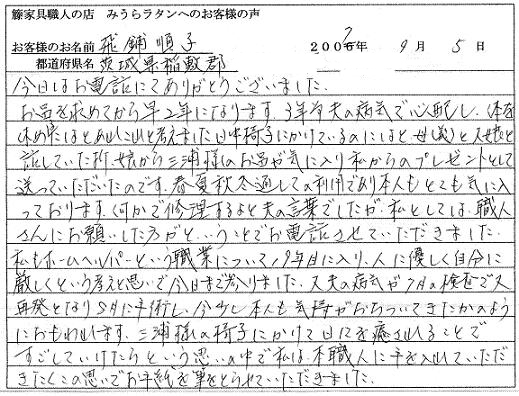 籐家具職人の店 みうらラタンへのお客様の声
お客様のお名前 飛鋪順子 2007年 9月 5日
都道府県名 茨城県稲敷郡
今日はお電話にてありがとうございました。
お品を求めてから早2年になります。3年前夫の病気で心配し、体を
休めたほと あれこれと考えました 日中椅子にかけているのにはと 母(義)と娘と
話していた所、娘から三浦様のお品が気に入り私からのプレゼントとして
送っていただいたのです。春夏秋冬通しての利用であり本人もとても気に入
っております。何かで修理するよと夫の言葉でしたが、私としては、職人
さんにお願いした方がと、いうことでお電話させていただきました。
私もホームヘルパーという職業について19年目に入り、人に優しく自分に
厳しくという考えと思いで今日まで参りました。又夫の病気が7月の検査で又
再発となり8月に手術し、今少し本人も気持がおちついてきたかのよう
におもわれます。三浦様の椅子にかけて日々を癒されることで
すごしていけたらという思いの中で私は、本職人に手を入れていただ
きたくこの思いでお手紙を筆をとらせていただきました。